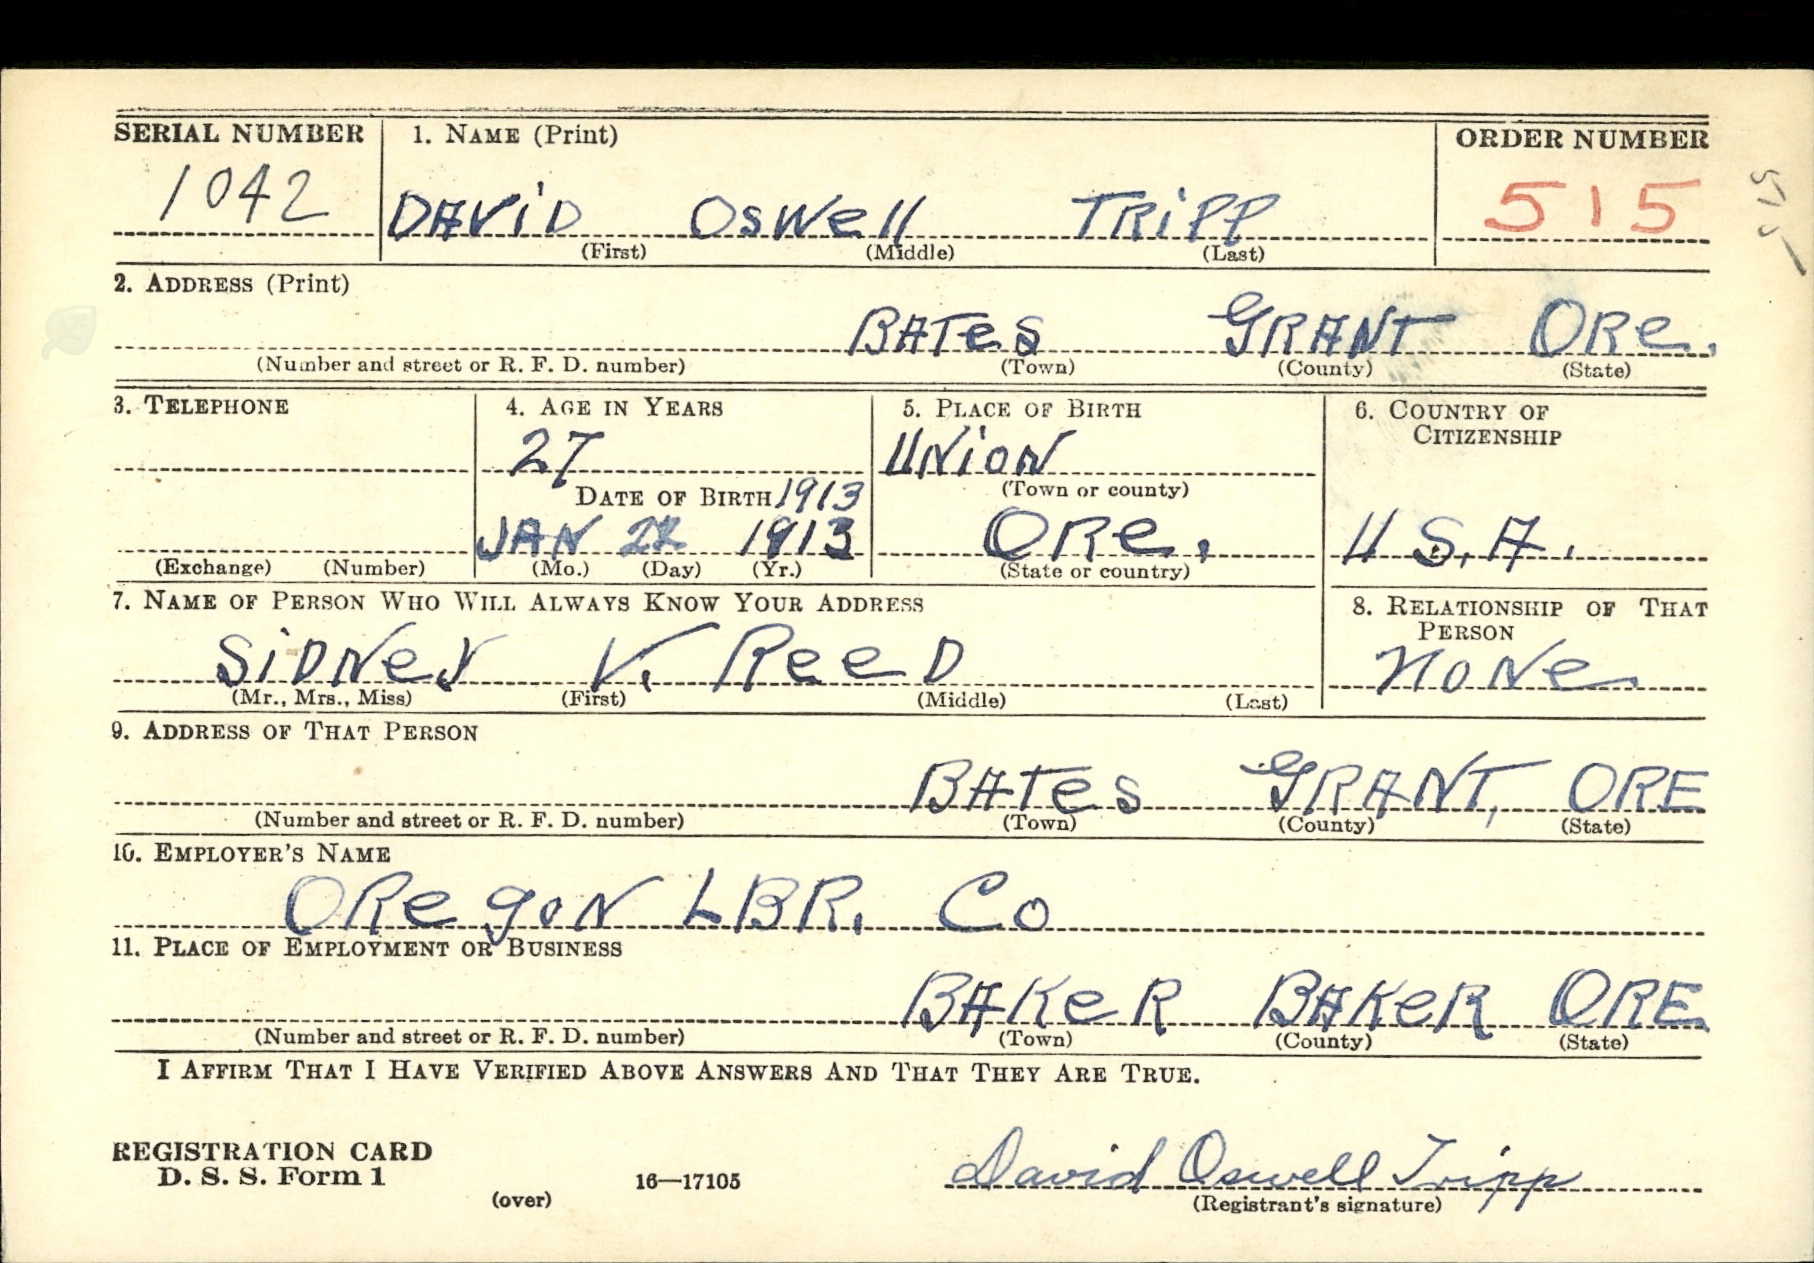 SERIAL NUMBER 1. NAME (Print) ORDER NUMBER
1042 DAViD OSWell TRiPP 515 515
(First) (Middle) (Last)
2. ADDRESS (Print)
BATes GRANT ORe.
(Number and street or R. F. D. number) (Town) (County) (State)
3. TELEPHONE 4. AGE IN YEARS 5. PLACE OF BIRTH 6. COUNTRY OF
CITIZENSHIP
27 UNioN
DATE OF BIRTH 1913 (Town or county)
JAN 1913 ORe. U S.A.
(Exchange) (Number) (Mo.) (Day) (Yr.) (State or country)
7. NAME OF PERSON WHO WILL ALWAYS KNOW YOUR ADDRESS 8. RELATIONSHIP OF THAT
PERSON
SiDNey V. ReeD NoNe
(Mr., Mrs., Miss) (First) (Middle) (Last)
9. ADDRESS OF THAT PERSON
BATes GRANT, ORE
(Number and street or R. F. D. number) (Town) (County) (State)
10. EMPLOYER'S NAME
ORegoN LBR. Co
11. PLACE OF EMPLOYMENT OR BUSINESS
BAKeR BAKeR ORE
(Number and street or R. F. D. number) (Town) (County) (State)
I AFFIRM THAT I HAVE VERIFIED ABOVE ANSWERS AND THAT THEY ARE TRUE.
REGISTRATION CARD
D. S. S. Form 1 16—17105 David Oswell Tripp
(over) (Registrant's signature)